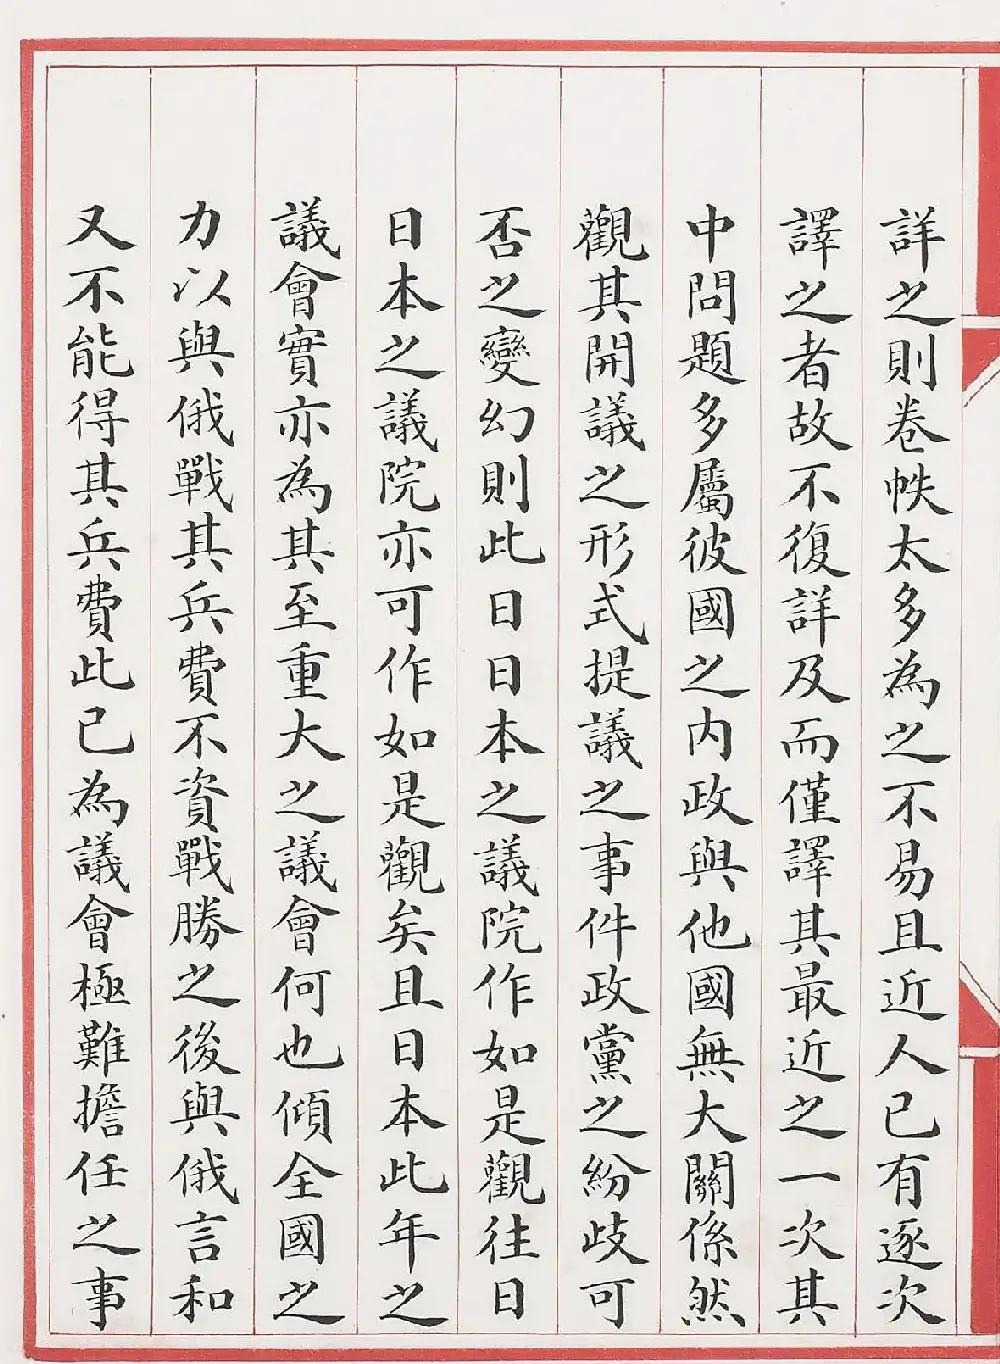 詳之則卷帙太多為之不易且近人已有逐次
譯之者故不復詳及而僅譯其最近之一次其
中問題多屬彼國之內政與他國無大關係然
觀其開議之形式提議之事件政黨之紛歧可
否之變幻則此日日本之議院作如是觀往日
日本之議院亦可作如是觀矣且日本此年之
議會實亦為其至重大之議會何也傾全國之
力以與俄戰其兵費不資戰勝之後與俄言和
又不能得其兵費此已為議會極難擔任之事